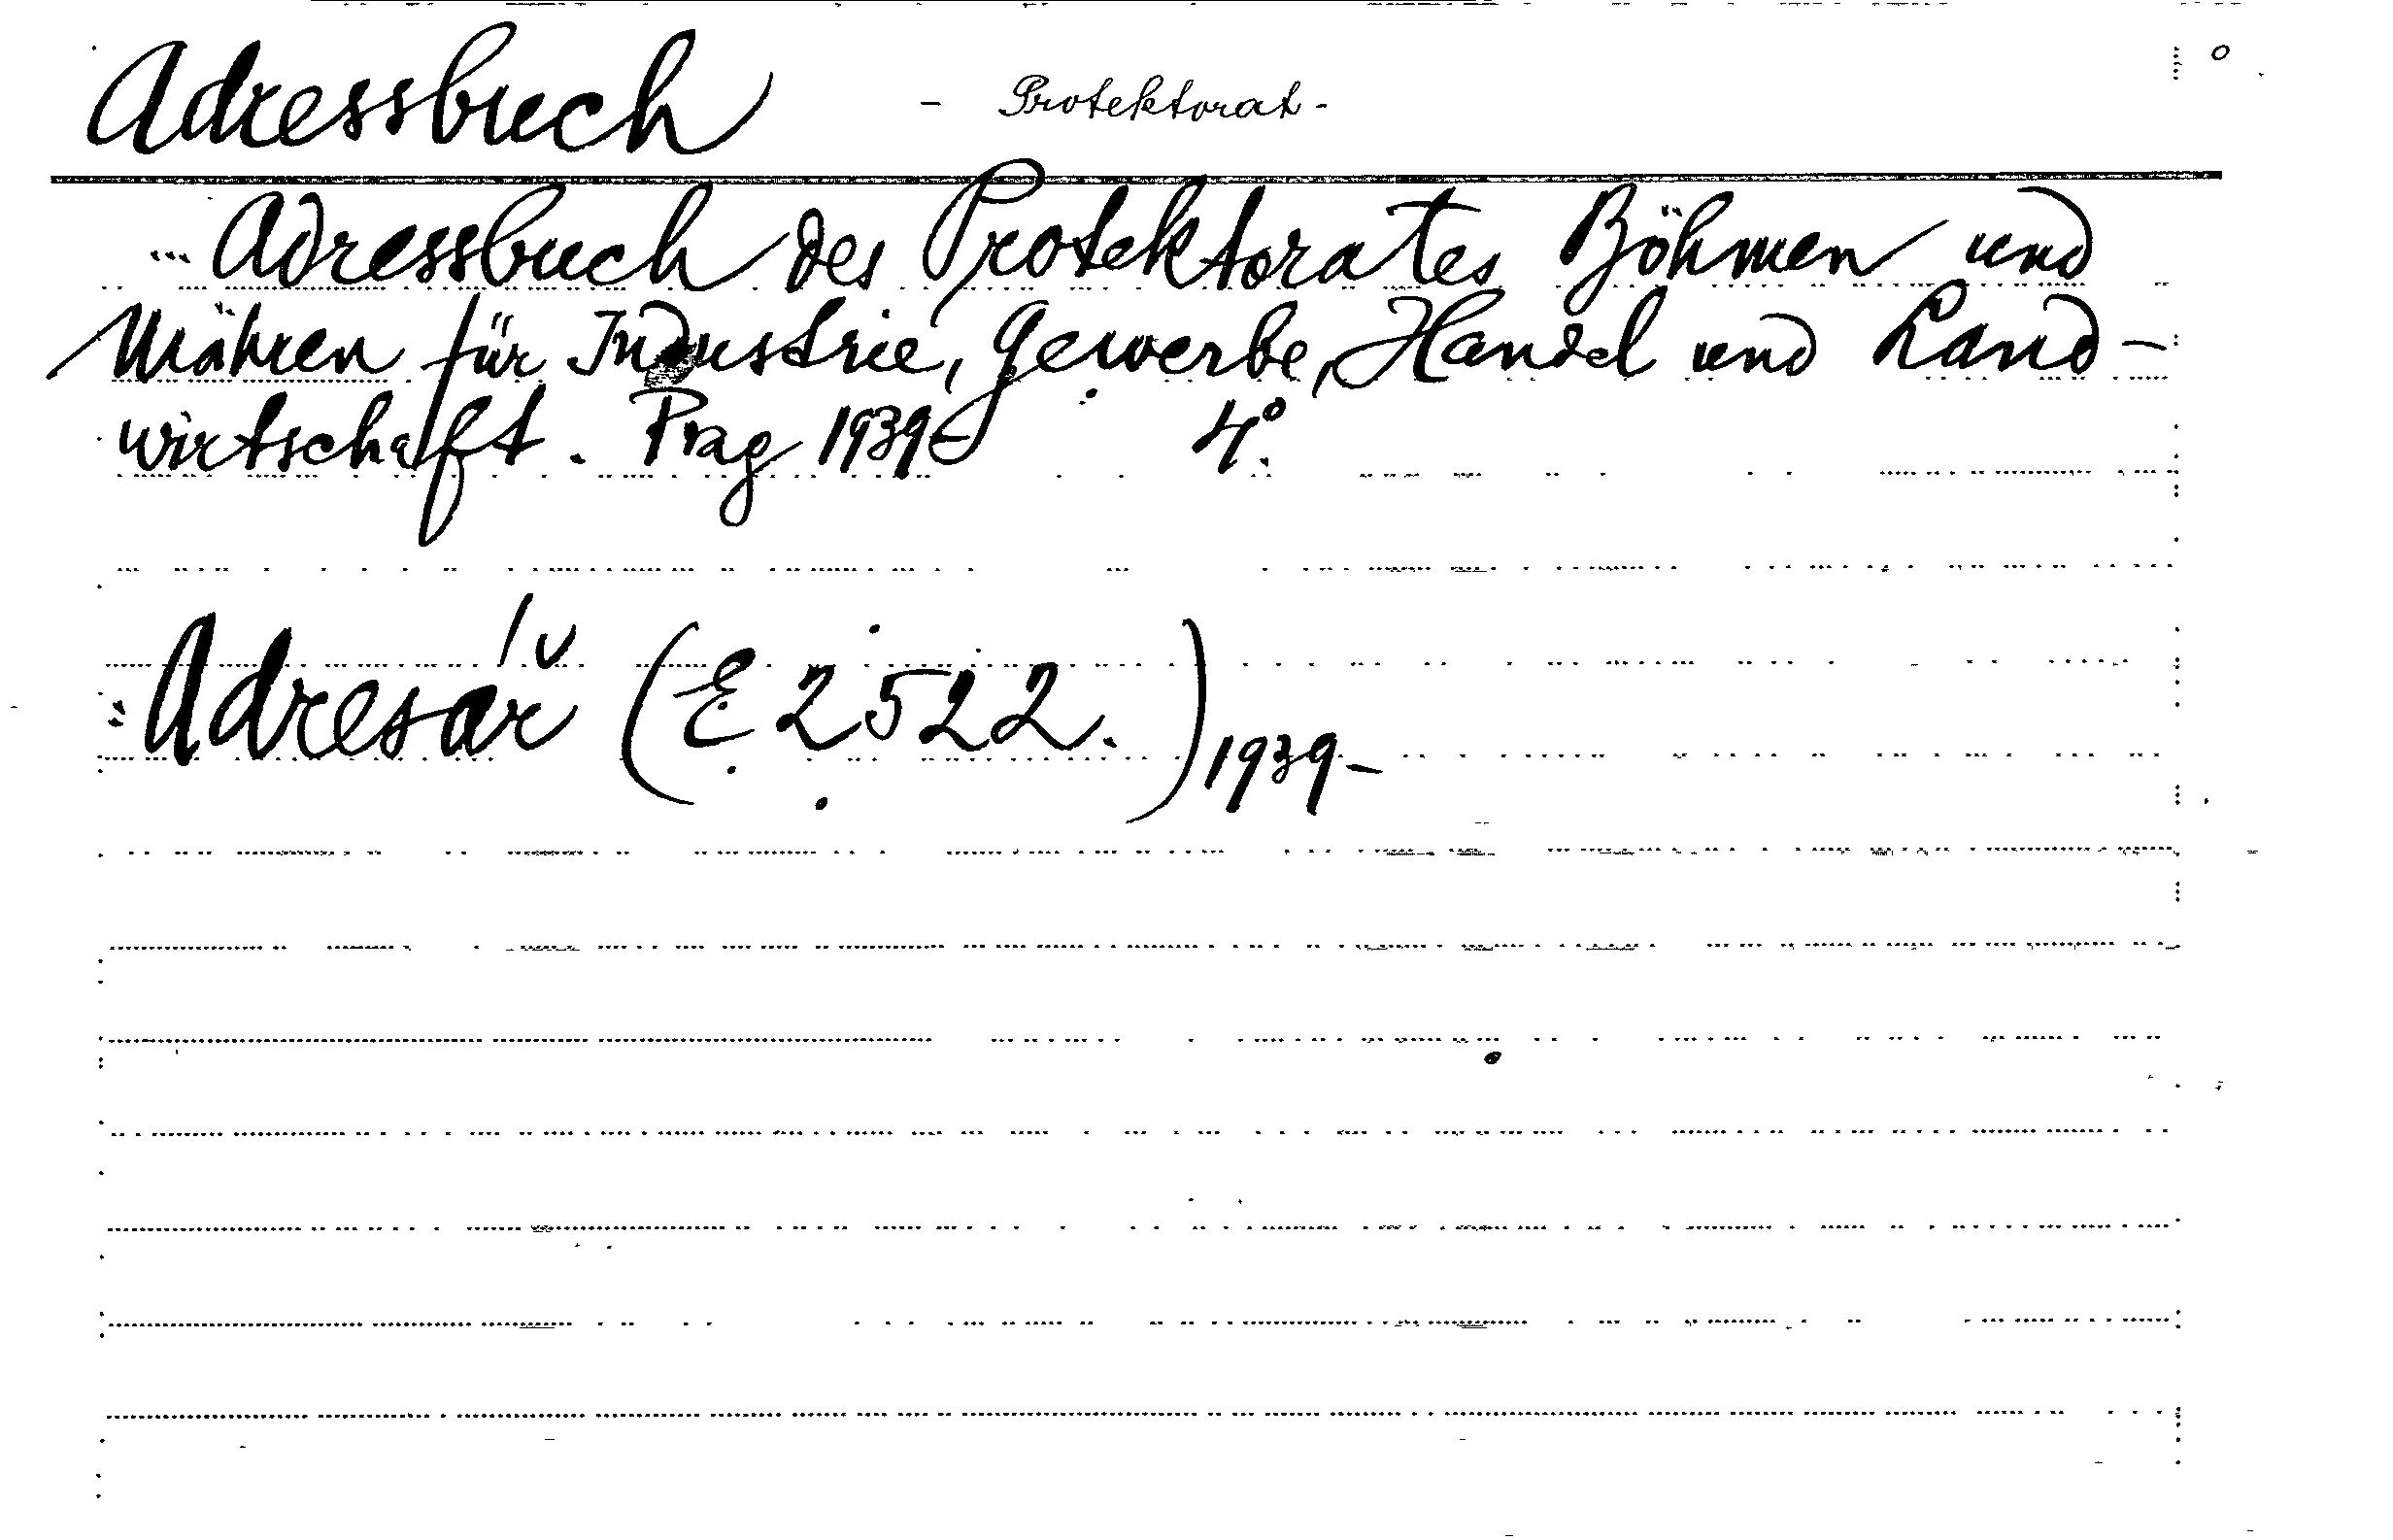 Adressbuch - Protektorat -
... Adressbuch des Protektorates Böhmen und
Mähren für Industrie, Gewerbe, Handel und Land-
wirtschaft. Prag 1939- 4°.
= Adresář (E 2522.) 1939-